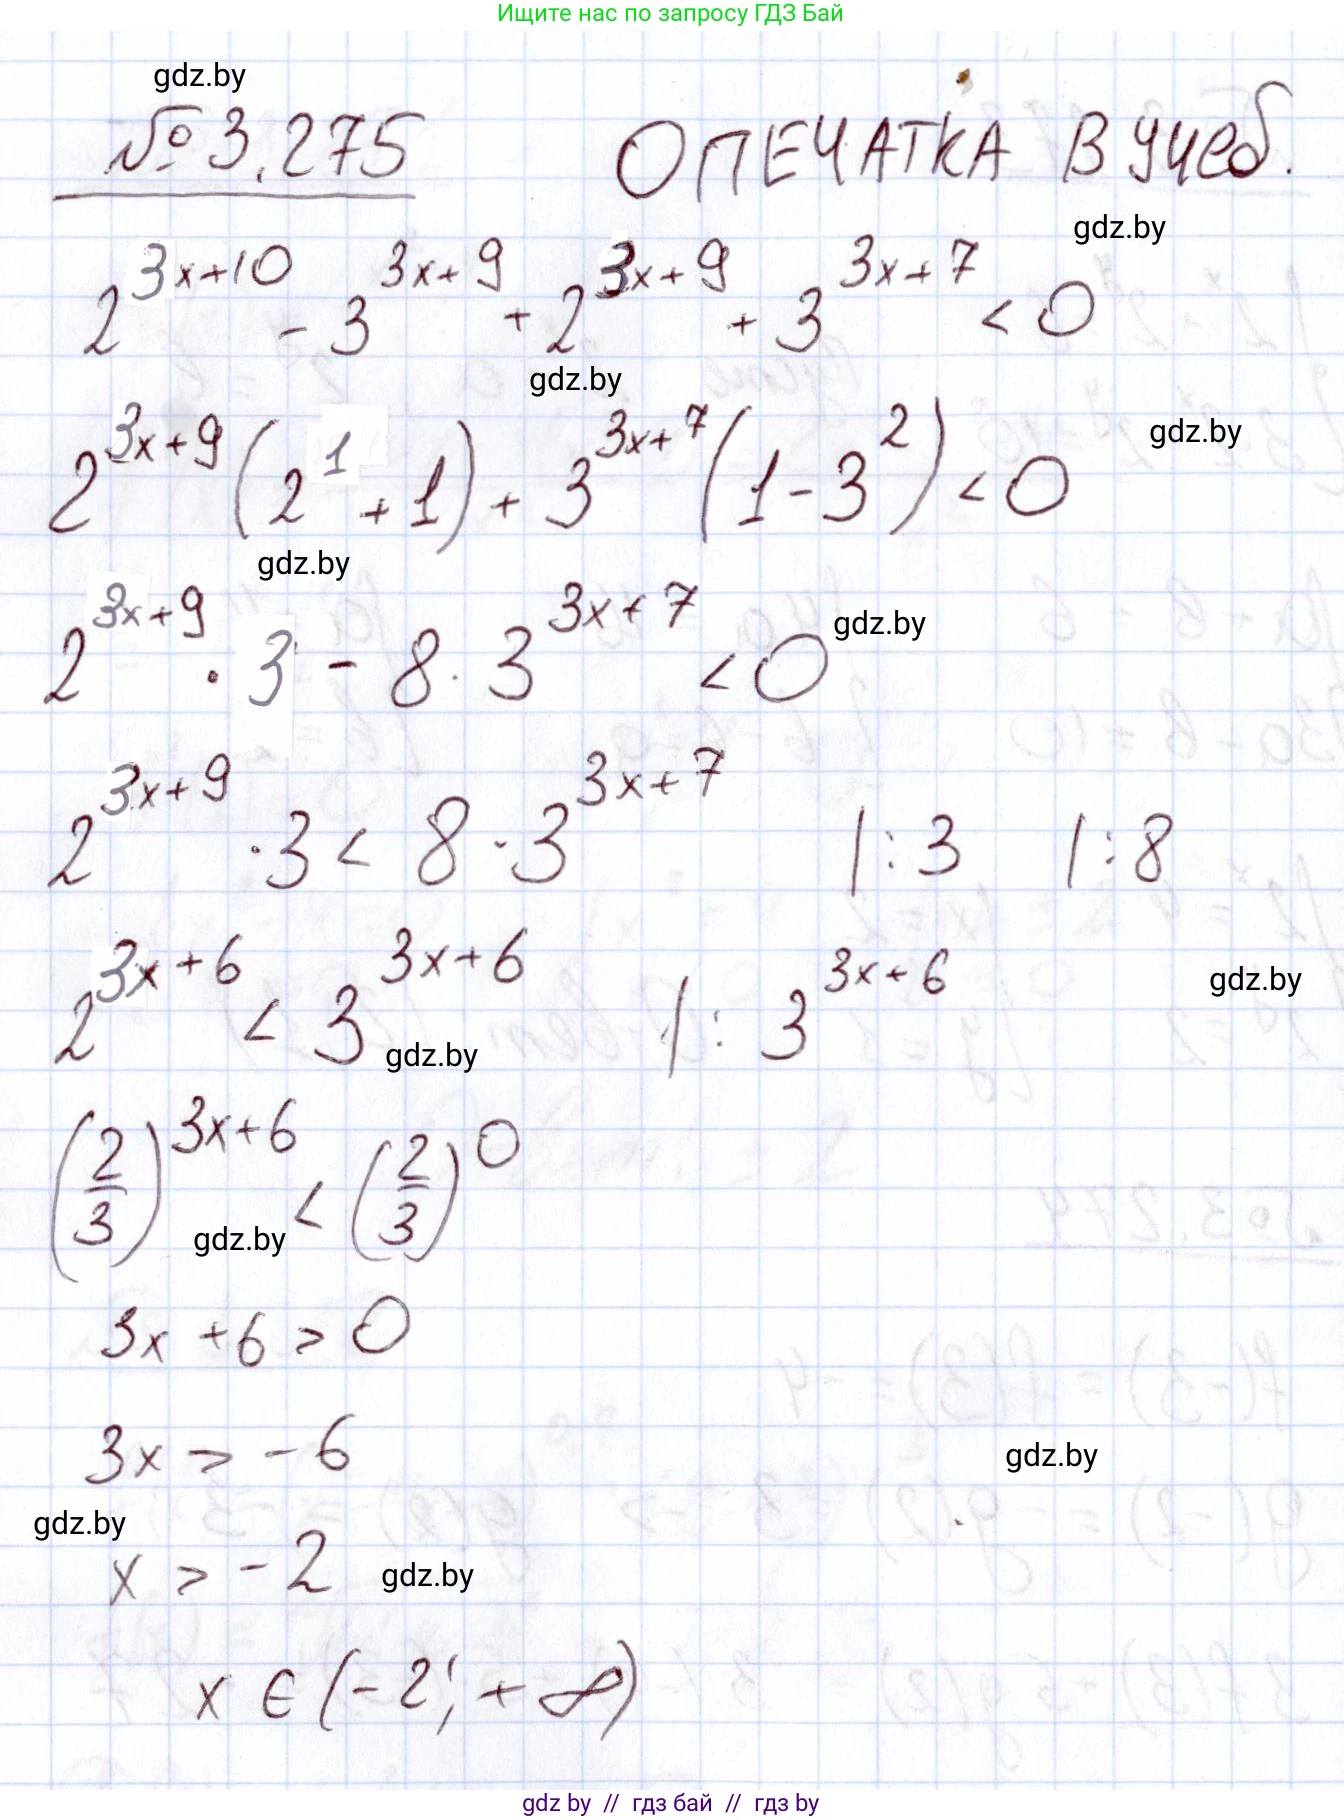 Ищите нас по запросу ГДЗ Бай
gdz.by
№ 3.275 ОПЕЧАТКА В учеб.
gdz.by
2^{3x+10} - 3^{3x+9} + 2^{3x+9} + 3^{3x+7} < 0
gdz.by
2^{3x+9} (2^1 + 1) + 3^{3x+7} (1 - 3^2) < 0
gdz.by
gdz.by
2^{3x+9} · 3 - 8 · 3^{3x+7} < 0
gdz.by
2^{3x+9} · 3 < 8 · 3^{3x+7} |:3 |:8
2^{3x+6} < 3^{3x+6} |: 3^{3x+6}
gdz.by
gdz.by
(2/3)^{3x+6} < (2/3)^0
gdz.by
3x + 6 > 0
3x > -6
gdz.by
gdz.by
x > -2
gdz.by
x ∈ (-2; +∞)
gdz by // гдз бай // гдз by